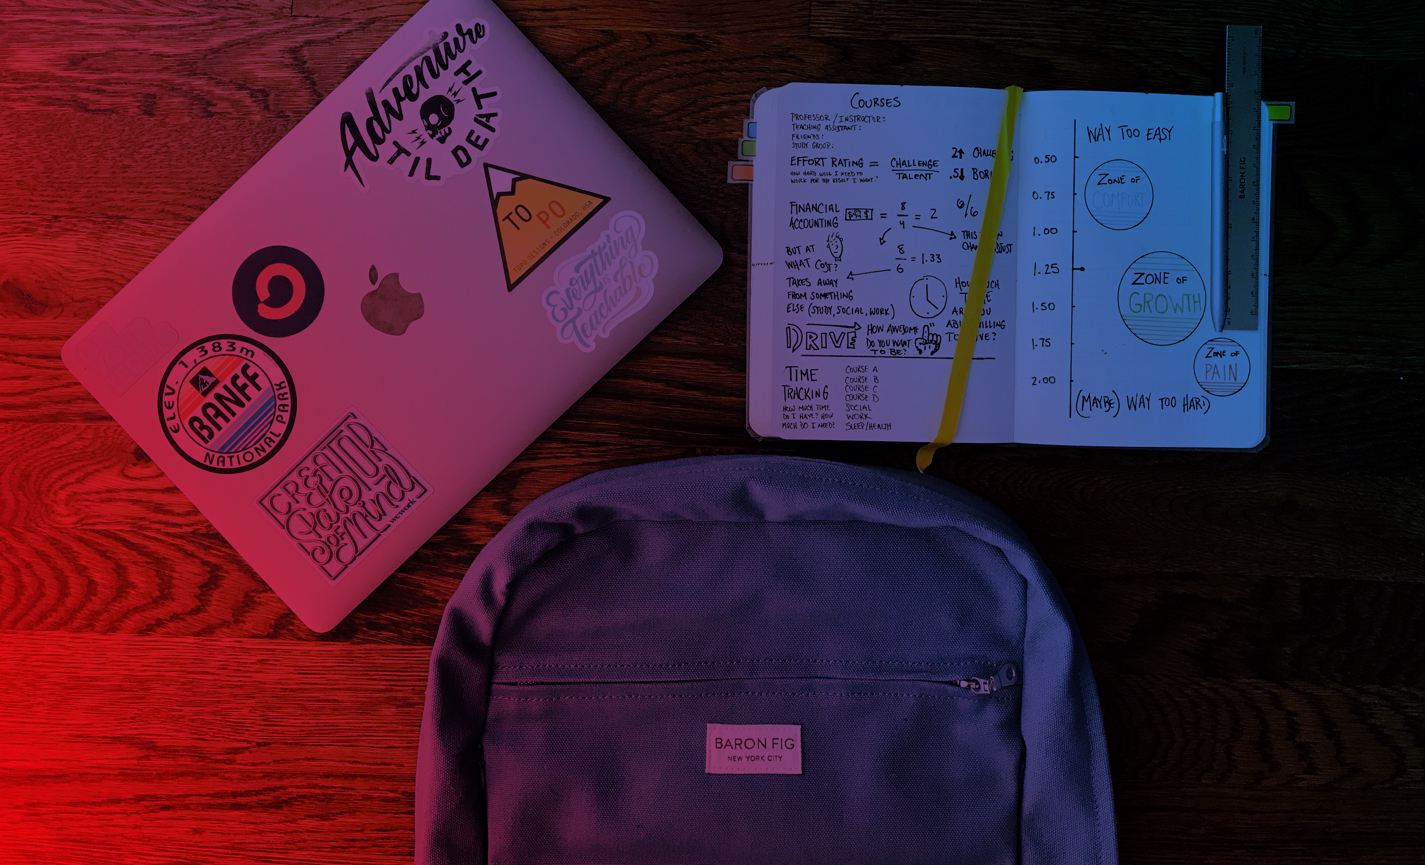 Adventure
TIL DEATH
TO PO
TOPO DESIGNS • COLORADO, USA
Everything
is
Teachable
ELEV. 1,383m
BANFF
NATIONAL PARK
CREATOR
Pale
of Mind
wework
COURSES
PROFESSOR / INSTRUCTOR:
TEACHING ASSISTANT:
FRIENDS:
STUDY GROUP:
EFFORT RATING = CHALLENGE
TALENT
HOW HARD WILL I NEED TO
WORK FOR THE RESULT I WANT?
2↑ CHALLE
.5↓ BOR
FINANCIAL
ACCOUNTING
= 8
4 = 2
6/6
THIS
CHA
BUT AT
WHAT COST?
8
6 = 1.33
TAKES AWAY
FROM SOMETHING
ELSE (STUDY, SOCIAL, WORK)
DRIVE
HOW AWESOME
DO YOU WANT
TO BE?
TIME
TRACKING
HOW MUCH TIME
DO I HAVE? HOW
MUCH DO I NEED?
COURSE A
COURSE B
COURSE C
COURSE D
SOCIAL
WORK
SLEEP/HEALTH
WAY TOO EASY
0.50
0.75
1.00
1.25
1.50
1.75
2.00
ZONE OF
COMFORT
ZONE OF
GROWTH
ZONE OF
PAIN
(MAYBE) WAY TOO HARD
BARON FIG
BARON FIG
NEW YORK CITY